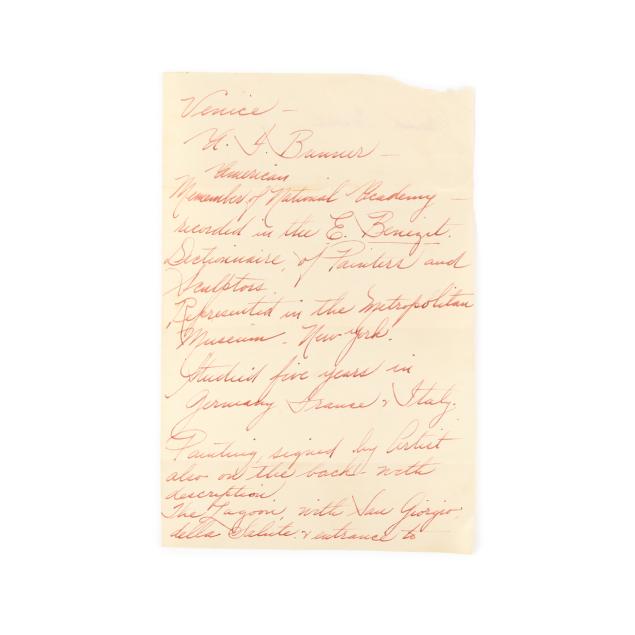 Venice —
A. F. Bunner —
American
Memember of National Academy —
recorded in the E. Benezit.
Dictionnaire, of Painters and
Sculptors.
Represented in the Metropolitan
Museum. New York.
Studied five years in
Germany France & Italy.
Painting signed by Artist
also on the back - with
description.
The Lagoon, with San Giorgio,
della Salute. & entrance to